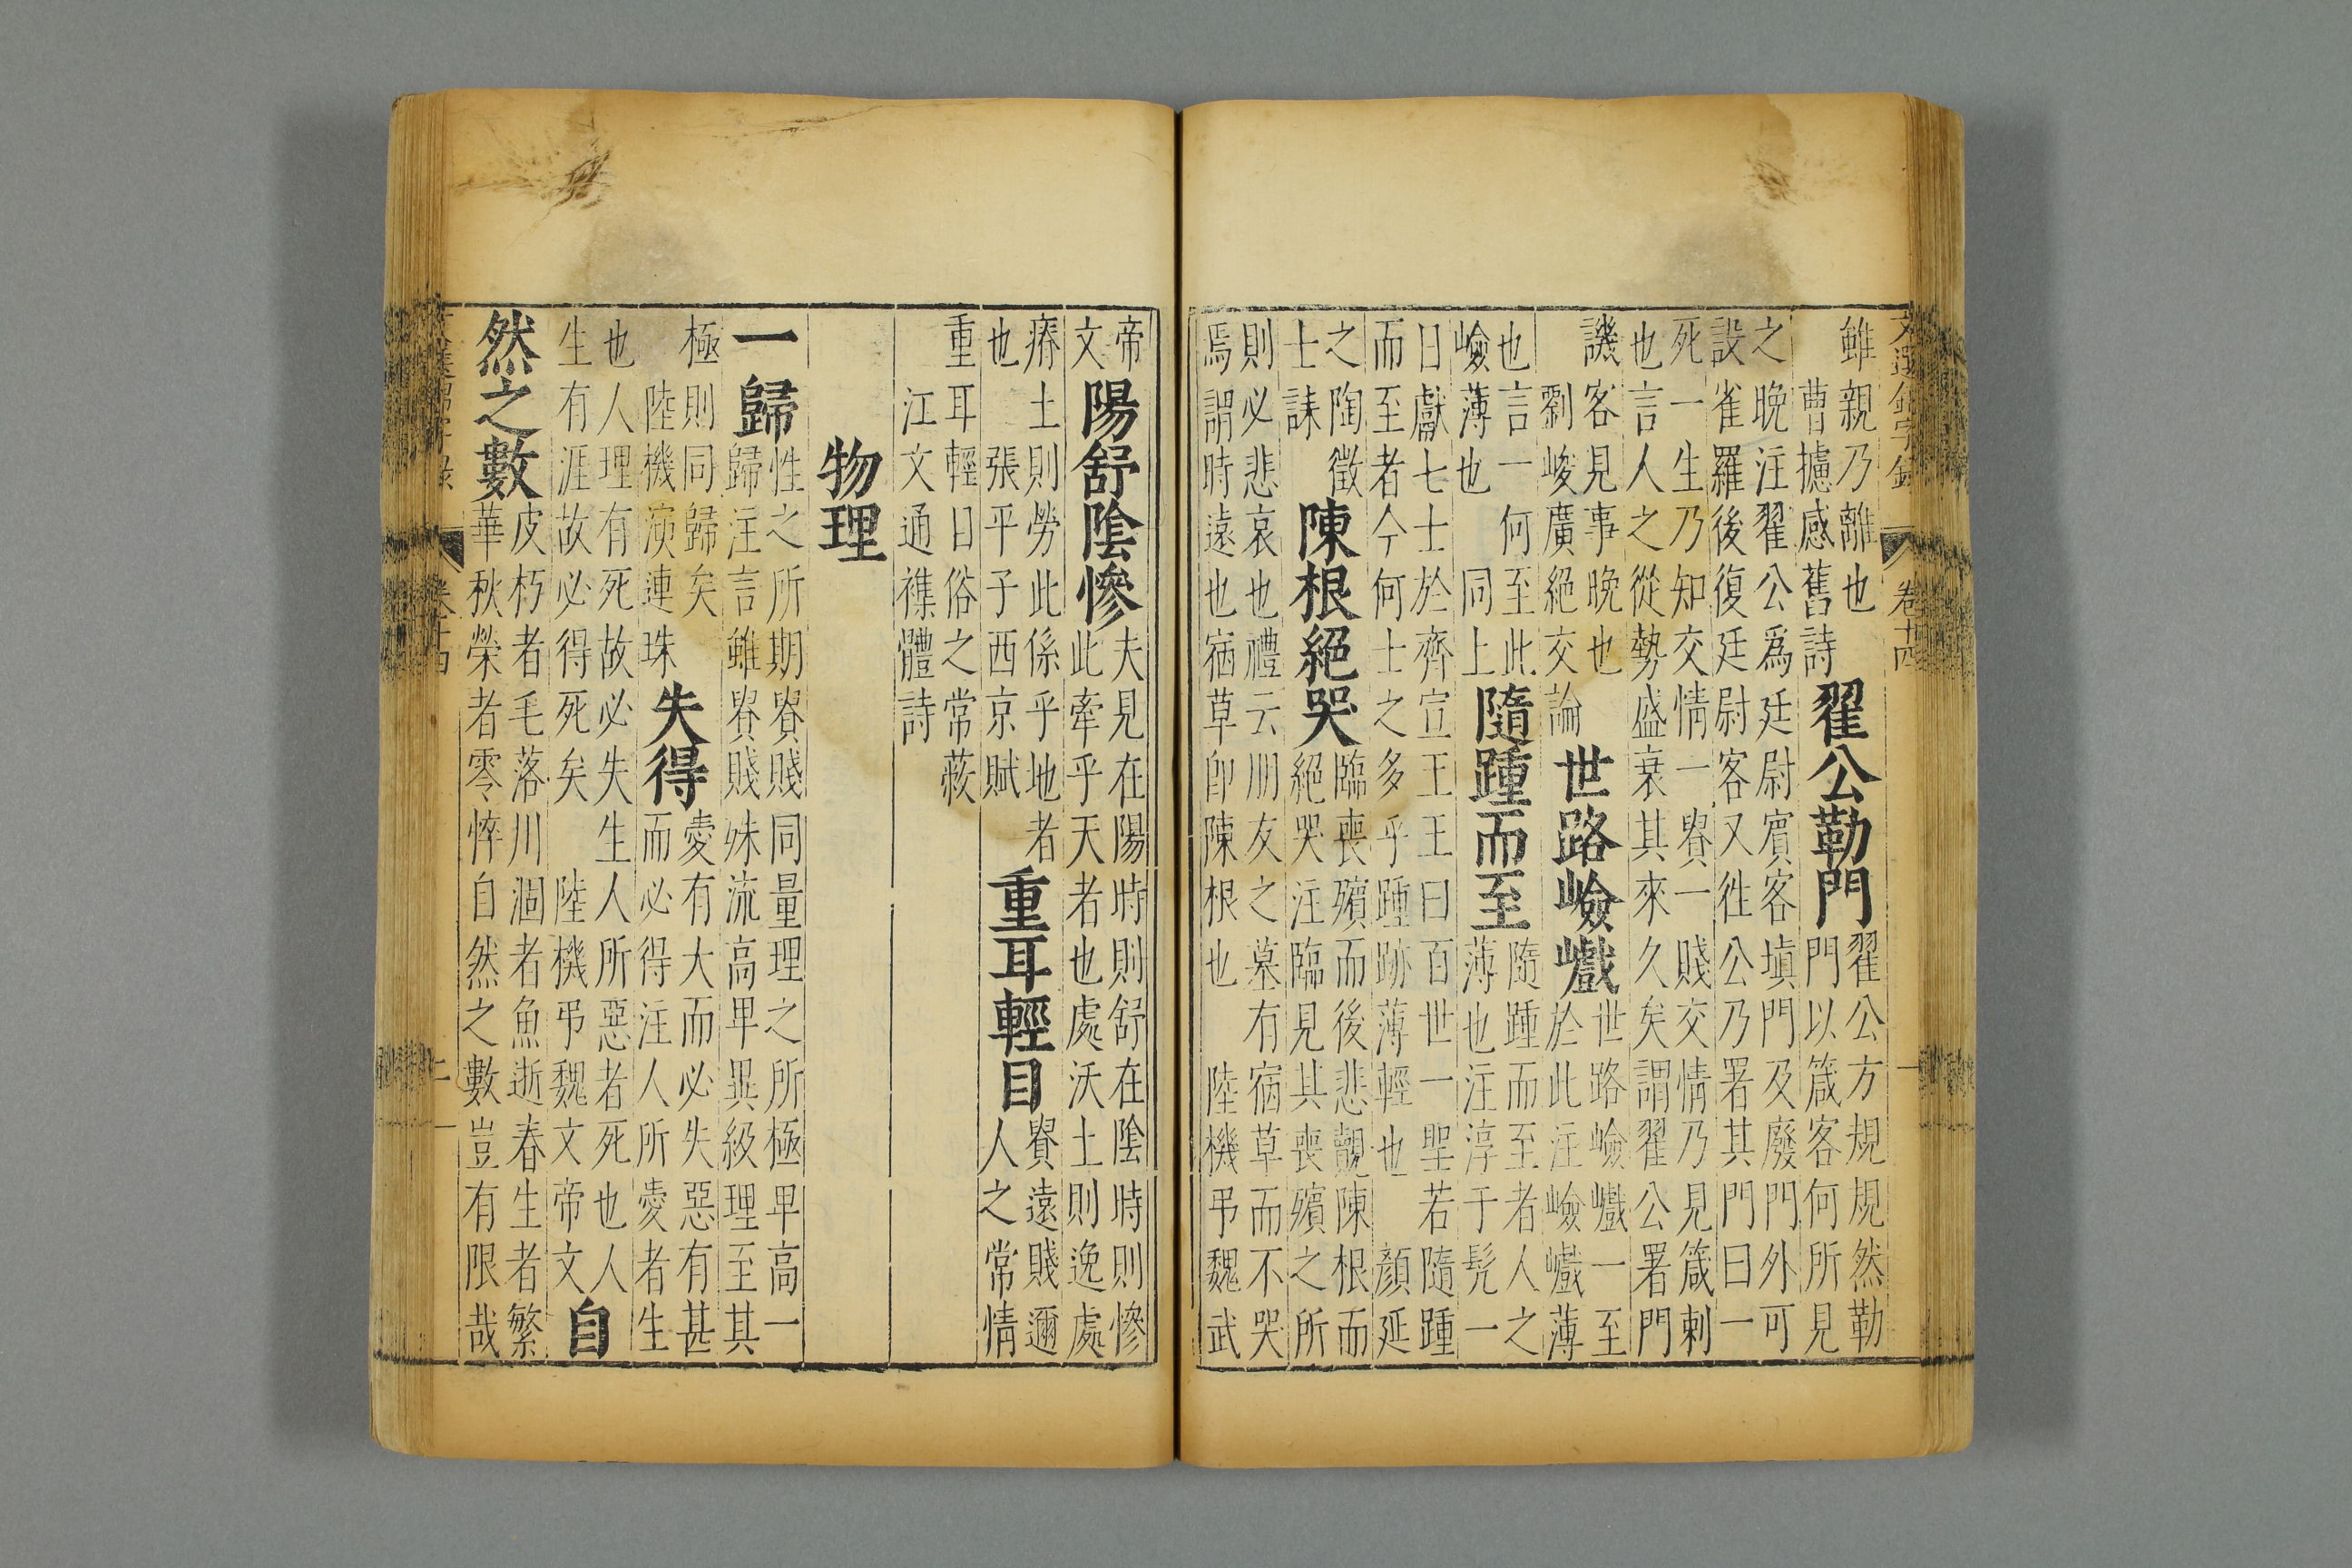 文選錦字錄 卷十四
雖親乃離也
曹攄感舊詩
翟公勒門
翟公方規規然勒
門以箴客何所見
之晚注翟公爲廷尉賓客塡門及廢門外可
設雀羅後復廷尉客又徃公乃署其門曰一
死一生乃知交情一貴一賤交情乃見箴刺
也言人之從勢盛衰其來久矣謂翟公署門
譏客見事晚也
劉峻廣絕交論
世路嶮巇
世路嶮巇一至
於此注嶮巇薄
也言一何至此
嶮薄也 同上
隨踵而至
隨踵而至者人之
薄也注淳于髠一
日獻七士於齊宣王王曰百世一聖若隨踵
而至者今何士之多乎踵跡薄輕也 顏延
之陶徵
士誄
陳根絕哭
臨喪殯而後悲覩陳根而
絕哭注臨見其喪殯之所
則必悲哀也禮云朋友之墓有宿草而不哭
焉謂時遠也宿草卽陳根也 陸機弔魏武
帝
文
陽舒陰慘
夫見在陽時則舒在陰時則慘
此牽乎天者也處沃土則逸處
瘠土則勞此係乎地者
也 張平子西京賦
重耳輕目
貴遠賤邇
人之常情
重耳輕目俗之常蔽
江文通襍體詩
物理
一歸
性之所期貴賤同量理之所極卑高一
歸注言雖貴賤殊流高卑異級理至其
極則同歸矣
陸機演連珠
失得
愛有大而必失惡有甚
而必得注人所愛者生
也人理有死故必失生人所惡者死也人
生有涯故必得死矣 陸機弔魏文帝文
自
然之數
皮朽者毛落川涸者魚逝春生者繁
華秋榮者零悴自然之數豈有限哉
卷十四